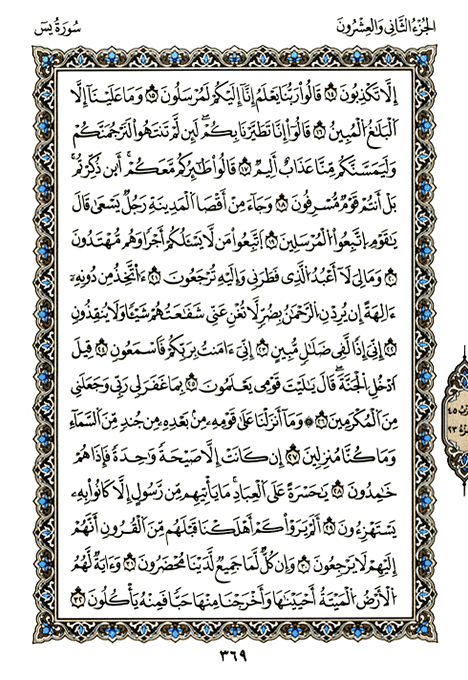 الجزء الثاني والعشرون
سورة يس
إِلَّا تَكْذِبُونَ ١٤ قَالُواْ رَبُّنَا يَعْلَمُ إِنَّا إِلَيْكُمْ لَمُرْسَلُونَ ١٥ وَمَا عَلَيْنَا إِلَّا
اَ۬لْبَلَٰغُ اُ۬لْمُبِينُ ١٦ قَالُواْ إِنَّا تَطَيَّرْنَا بِكُمْ لَئِن لَّمْ تَنتَهُواْ لَنَرْجُمَنَّكُمْ
وَلَيَمَسَّنَّكُم مِّنَّا عَذَابٌ أَلِيمٌ ١٧ قَالُواْ طَٰٓئِرُكُم مَّعَكُمْ أَئِن ذُكِّرْتُم
بَلْ أَنتُمْ قَوْمٌ مُّسْرِفُونَ ١٨ وَجَآءَ مِنْ أَقْصَا اَ۬لْمَدِينَةِ رَجُلٌ يَسْعَىٰ قَالَ
يَٰقَوْمِ اِ۪تَّبِعُواْ اُ۬لْمُرْسَلِينَ ١٩ اَ۪تَّبِعُواْ مَن لَّا يَسْـَٔلُكُمْ أَجْرًا وَهُم مُّهْتَدُونَ
٢٠ وَمَالِيَ لَآ أَعْبُدُ اُ۬لَّذِي فَطَرَنِي وَإِلَيْهِ تُرْجَعُونَ ٢١ ءَأَتَّخِذُ مِن دُونِهِۦٓ
ءَالِهَةً إِنْ يُّرِدْنِ اِ۬لرَّحْمَٰنُ بِضُرٍّ لَّا تُغْنِ عَنِّي شَفَٰعَتُهُمْ شَيْـًٔا وَلَا يُنقِذُونِ
٢٢ إِنِّيَ إِذًا لَّفِي ضَلَٰلٍ مُّبِينٍ ٢٣ إِنِّيَ ءَامَنتُ بِرَبِّكُمْ فَاسْمَعُونِ ٢٤ قِيلَ
اَ۟دْخُلِ اِ۬لْجَنَّةَ قَالَ يَٰلَيْتَ قَوْمِي يَعْلَمُونَ ٢٥ بِمَا غَفَرَ لِي رَبِّي وَجَعَلَنِي
مِنَ اَ۬لْمُكْرَمِينَ ٢٦ ۞ وَمَآ أَنزَلْنَا عَلَىٰ قَوْمِهِۦ مِنۢ بَعْدِهِۦ مِن جُندٍ مِّنَ اَ۬لسَّمَآءِ
وَمَا كُنَّا مُنزِلِينَ ٢٧ إِن كَانَتْ إِلَّا صَيْحَةً وَٰحِدَةً فَإِذَا هُمْ
خَٰمِدُونَ ٢٨ يَٰحَسْرَةً عَلَى اَ۬لْعِبَادِ مَا يَأْتِيهِم مِّن رَّسُولٍ إِلَّا كَانُواْ بِهِۦ
يَسْتَهْزِءُونَ ٢٩ أَلَمْ يَرَوْاْ كَمْ أَهْلَكْنَا قَبْلَهُم مِّنَ اَ۬لْقُرُونِ أَنَّهُمْ
إِلَيْهِمْ لَا يَرْجِعُونَ ٣٠ وَإِن كُلٌّ لَّمَا جَمِيعٌ لَّدَيْنَا مُحْضَرُونَ ٣١ وَءَايَةٌ لَّهُمُ
اُ۬لْأَرْضُ اُ۬لْمَيِّتَةُ أَحْيَيْنَٰهَا وَأَخْرَجْنَا مِنْهَا حَبًّا فَمِنْهُ يَأْكُلُونَ ٣٢
٣٦٩